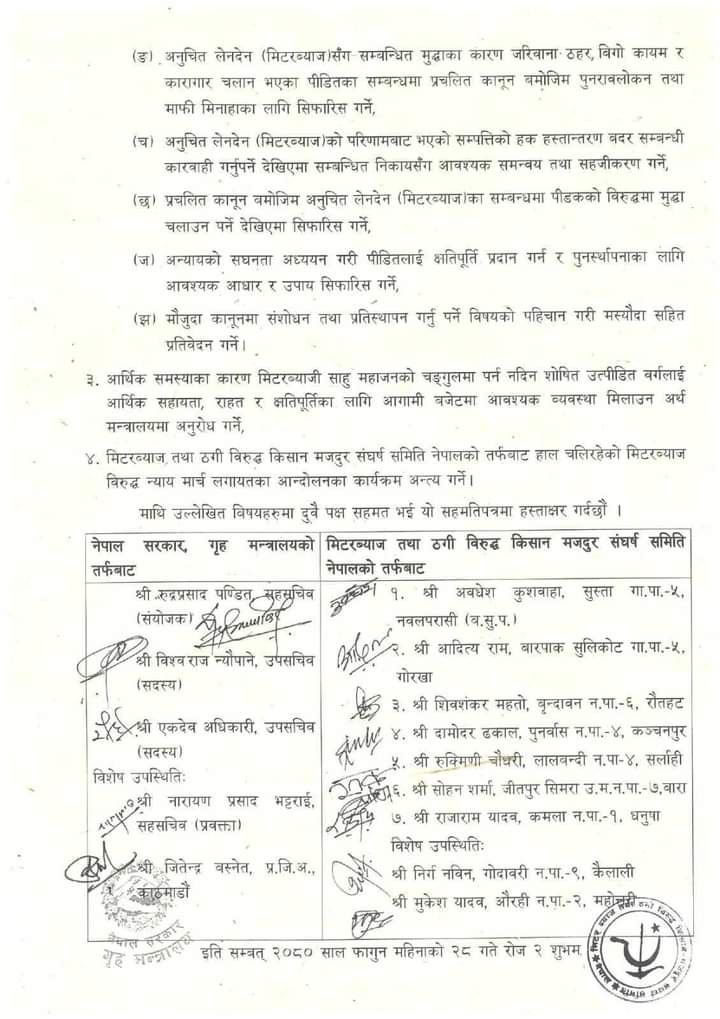 (ङ) अनुचित लेनदेन (मिटरब्याज)सँग सम्बन्धित मुद्धाका कारण जरिवाना ठहर, बिगो कायम र
कारागार चलान भएका पीडितका सम्बन्धमा प्रचलित कानून बमोजिम पुनरावलोकन तथा
माफी मिनाहाका लागि सिफारिस गर्ने,
(च) अनुचित लेनदेन (मिटरब्याज)को परिणामबाट भएको सम्पत्तिको हक हस्तान्तरण बदर सम्बन्धी
कारवाही गर्नुपर्ने देखिएमा सम्बन्धित निकायसँग आवश्यक समन्वय तथा सहजीकरण गर्ने,
(छ) प्रचलित कानून बमोजिम अनुचित लेनदेन (मिटरब्याज)का सम्बन्धमा पीडकको विरुद्धमा मुद्धा
चलाउन पर्ने देखिएमा सिफारिस गर्ने,
(ज) अन्यायको सघनता अध्ययन गरी पीडितलाई क्षतिपूर्ति प्रदान गर्न र पुनर्स्थापनाका लागि
आवश्यक आधार र उपाय सिफारिस गर्ने,
(झ) मौजुदा कानूनमा संशोधन तथा प्रतिस्थापन गर्नु पर्ने विषयको पहिचान गरी मस्यौदा सहित
प्रतिवेदन गर्ने।
३. आर्थिक समस्याका कारण मिटरब्याजी साहु महाजनको चङ्गुलमा पर्न नदिन शोषित उत्पीडित वर्गलाई
आर्थिक सहायता, राहत र क्षतिपूर्तिका लागि आगामी बजेटमा आवश्यक व्यवस्था मिलाउन अर्थ
मन्त्रालयमा अनुरोध गर्ने,
४. मिटरब्याज तथा ठगी विरुद्ध किसान मजदुर संघर्ष समिति नेपालको तर्फबाट हाल चलिरहेको मिटरब्याज
विरुद्ध न्याय मार्च लगायतका आन्दोलनका कार्यक्रम अन्त्य गर्ने।
माथि उल्लेखित विषयहरुमा दुवै पक्ष सहमत भई यो सहमतिपत्रमा हस्ताक्षर गर्दछौं ।
नेपाल सरकार, गृह मन्त्रालयको
तर्फबाट
श्री रुद्रप्रसाद पण्डित, सहसचिव
(संयोजक)
श्री विश्वराज न्यौपाने, उपसचिव
(सदस्य)
श्री एकदेव अधिकारी, उपसचिव
(सदस्य)
विशेष उपस्थितिः
श्री नारायण प्रसाद भट्टराई,
सहसचिव (प्रवक्ता)
श्री जितेन्द्र बस्नेत, प्र.जि.अ.,
काठमाडौं
मिटरब्याज तथा ठगी विरुद्ध किसान मजदुर संघर्ष समिति
नेपालको तर्फबाट
१. श्री अवधेश कुशवाहा, सुस्ता गा.पा.-५,
नवलपरासी (ब.सु.प.)
२. श्री आदित्य राम, बारपाक सुलिकोट गा.पा.-५,
गोरखा
३. श्री शिवशंकर महतो, वृन्दावन न.पा.-६, रौतहट
४. श्री दामोदर ढकाल, पुनर्वास न.पा.-४, कञ्चनपुर
५. श्री रुक्मिणी चौधरी, लालबन्दी न.पा-४, सर्लाही
६. श्री सोहन शर्मा, जीतपुर सिमरा उ.म.न.पा.-७,बारा
७. श्री राजाराम यादव, कमला न.पा.-१, धनुषा
विशेष उपस्थितिः
श्री निर्ग नविन, गोदावरी न.पा.-९, कैलाली
श्री मुकेश यादव, औरही न.पा.-२, महोत्तरी
नेपाल सरकार
गृह मन्त्रालय
इति सम्बत् २०८० साल फागुन महिनाको २८ गते रोज २ शुभम्